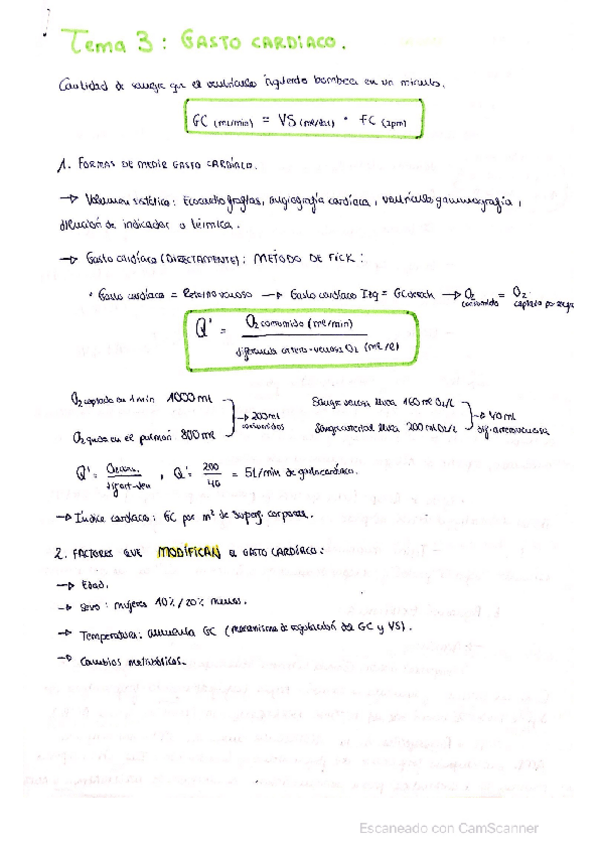 Tema 3: GASTO CARDÍACO.
Cantidad de sangre que el ventrículo izquierdo bombea en un minuto.
GC (ml/min) = VS (ml/lat) · FC (lpm)
1. FORMAS DE MEDIR GASTO CARDÍACO.
→ Volumen sistólico: Ecocardiografías, angiografía cardíaca, ventrículo gammagrafía,
dilución de indicador o térmica.
→ Gasto cardíaco (DIRECTAMENTE): MÉTODO DE FICK:
· Gasto cardíaco = Retorno venoso → Gasto cardíaco Izq = GC derech → O2 consumido = O2 captado por sangre
Q' = O2 consumido (ml/min) / diferencia arterio-venosa O2 (ml/l)
O2 captado en 1 min 1000 ml
O2 queda en el pulmón 800 ml
→ 200 ml consumidos
Sangre venosa lleva 160 ml O2/L
Sangre arterial lleva 200 ml O2/L
→ 40 ml dif. arteriovenosa
Q' = O2 cons. / dif art-ven , Q' = 200 / 40 = 5L/min de gasto cardiaco.
→ Índice cardíaco: GC por m² de superf. corporal.
2. FACTORES QUE MODIFICAN EL GASTO CARDÍACO:
→ Edad.
→ Sexo: mujeres 10%/20% menos.
→ Temperatura: aumenta GC (mecanismo de regulación del GC y VS).
→ Cambios metabólicos.
Escaneado con CamScanner